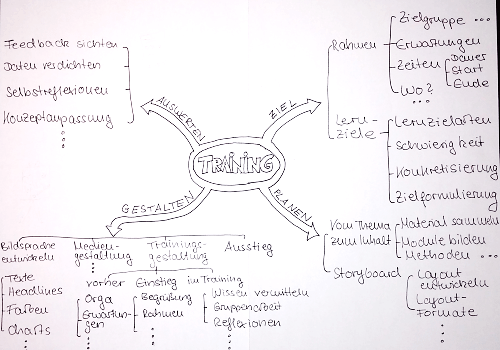 TRAINING
AUSWERTEN
Feedback sichten
Daten verdichten
Selbstreflexionen
Konzeptanpassung
ZIEL
Rahmen
Zielgruppe ...
Erwartungen
Zeiten
Dauer
Start
Ende
Wo?
...
Lern-
ziele
Lernzielarten
Schwierigkeit
Konkretisierung
Zielformulierung
PLANEN
Vom Thema
zum Inhalt
Material sammeln
Module bilden
Methoden ...
Storyboard
Layout
entwickeln
Layout-
Formate
GESTALTEN
Bildsprache
entwickeln
Texte
Headlines
Farben
Charts
Medien-
gestaltung
Trainings-
gestaltung
vorher
Orga
Erwartun-
gen
Einstieg
Begrüßung
Rahmen
im Training
Wissen vermitteln
Gruppenarbeit
Reflexionen
Ausstieg